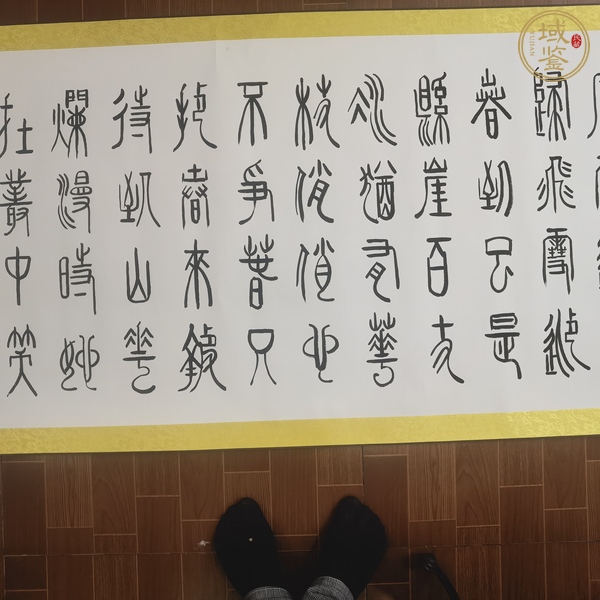 歸飛雪迎
春到已是
懸崖百丈
冰猶有花
枝俏俏也
不爭春只
把春來報
待到山花
爛漫時她
在叢中笑
域鉴